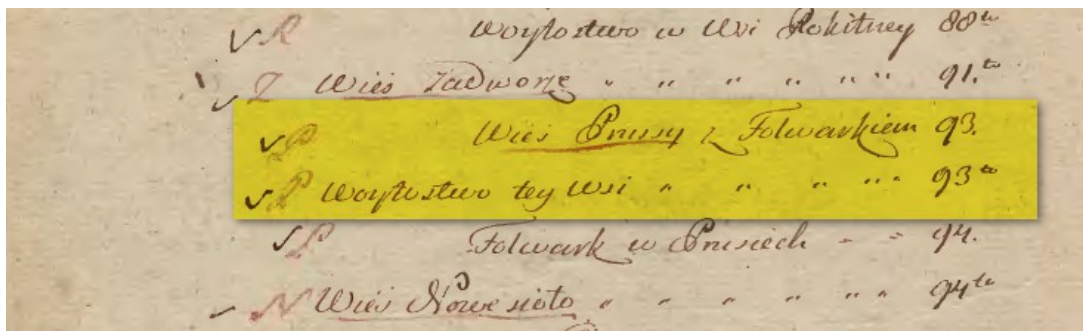 √ R Woytostwo w Wsi Rokitney 88 to
√ Z Wieś Zadworze " " " " " " 91. to
√ P Wieś Prusy z Folwarkiem 93.
√ P Woytostwo tey Wsi " " " " " 93 to
√ P Folwark w Prusiech - - 94.
N Wieś Nowe sioło " " " " " " 94 to